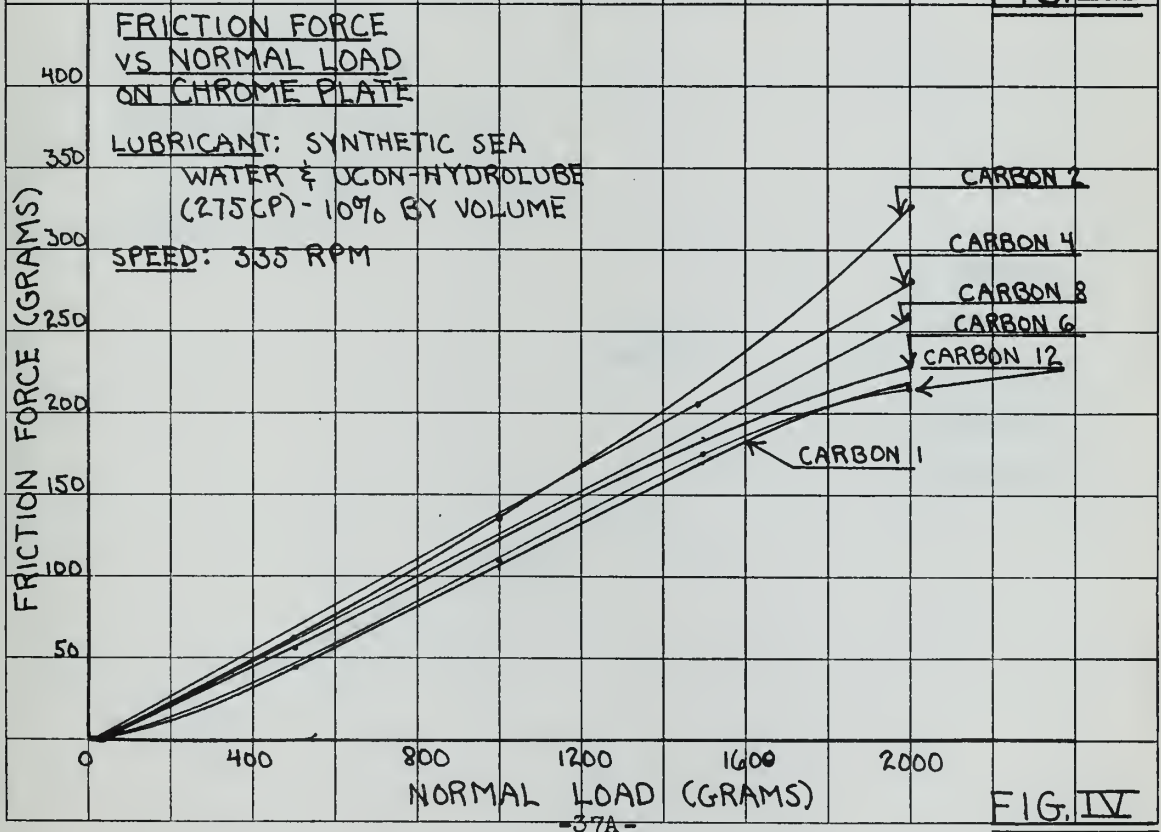 FRICTION FORCE
VS NORMAL LOAD
ON CHROME PLATE
LUBRICANT: SYNTHETIC SEA
WATER & UCON-HYDROLUBE
(275CP)-10% BY VOLUME
SPEED: 335 RPM
FRICTION FORCE (GRAMS)
400
350
300
250
200
150
100
50
CARBON 2
CARBON 4
CARBON 8
CARBON 6
CARBON 12
CARBON 1
0 400 800 1200 1600 2000
NORMAL LOAD (GRAMS)
FIG. IV
-37A-